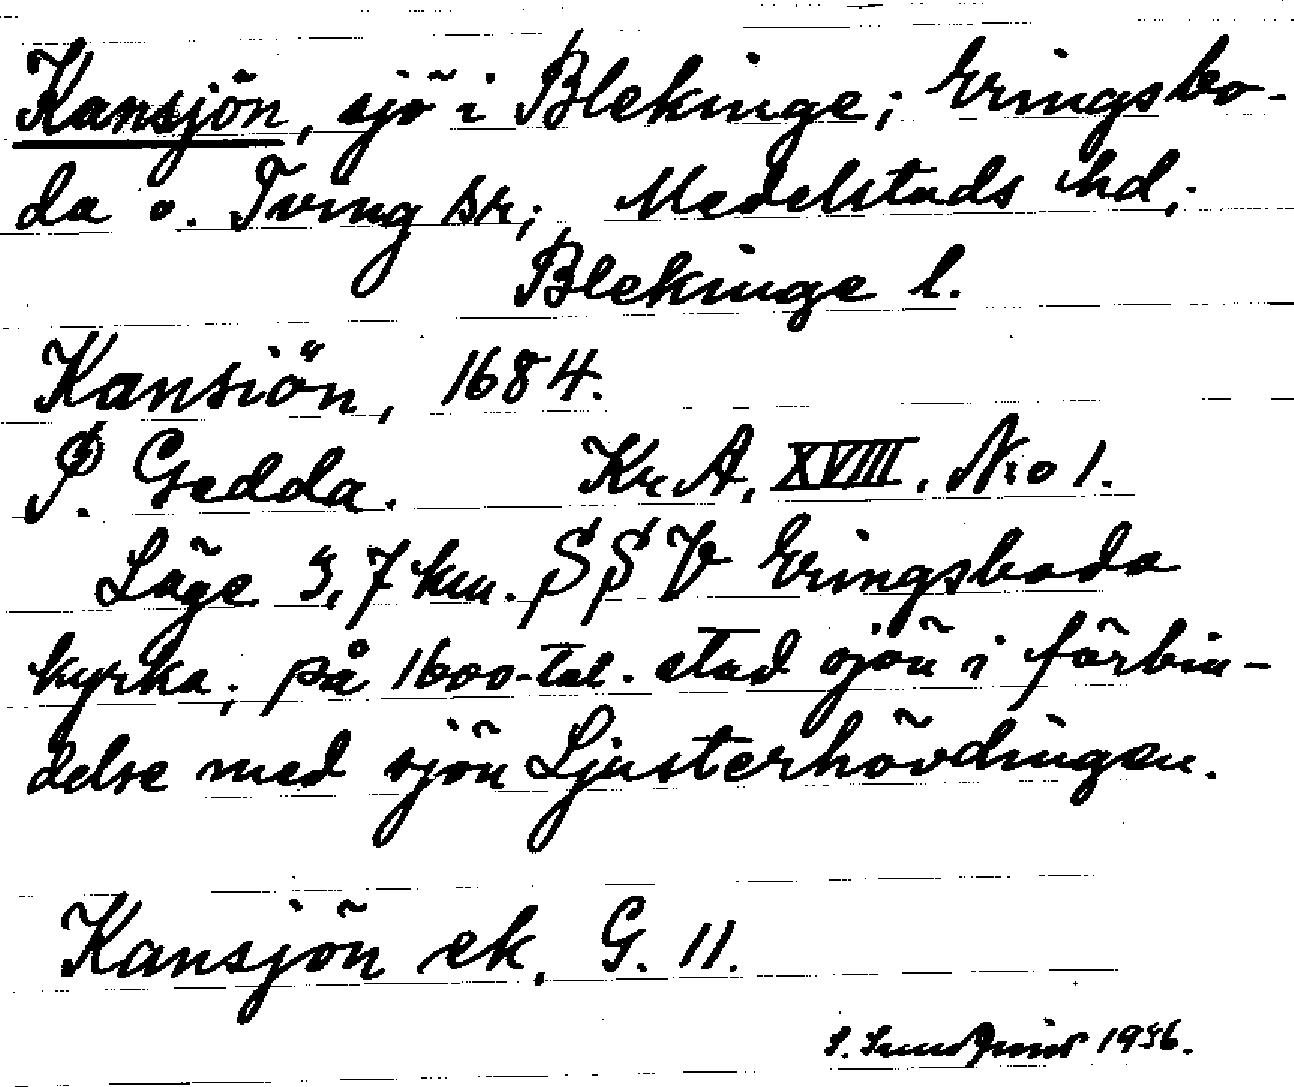 Kansjön, sjö i Blekinge; Eringsbo-
da o. Tving sn; Medelstads hd;
Blekinge l.
Kansiön, 1684.
P. Gedda. Kr. A, XVIII. N:o 1.
Läge 3,7 km. SSV Eringsboda
kyrka; på 1600-tal. stod sjön i förbin-
delse med sjön Ljusterhövdingen.
Kansjön ek, G. 11.
1936.